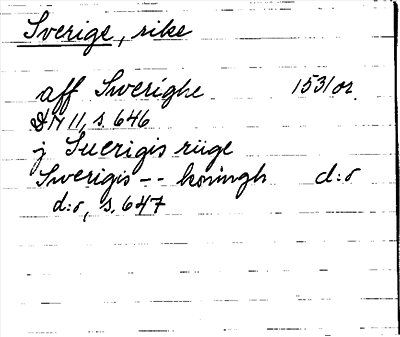 Sverige, rike
aff Swerighe 1531 or.
DN 11, s. 646
j Suerigis riige
Swerigis -- koningh d:o
d:o, s. 647